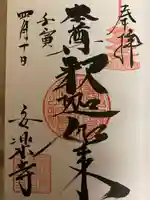 奉拝
本尊釈迦如来
壬寅
四月十日
安楽寺